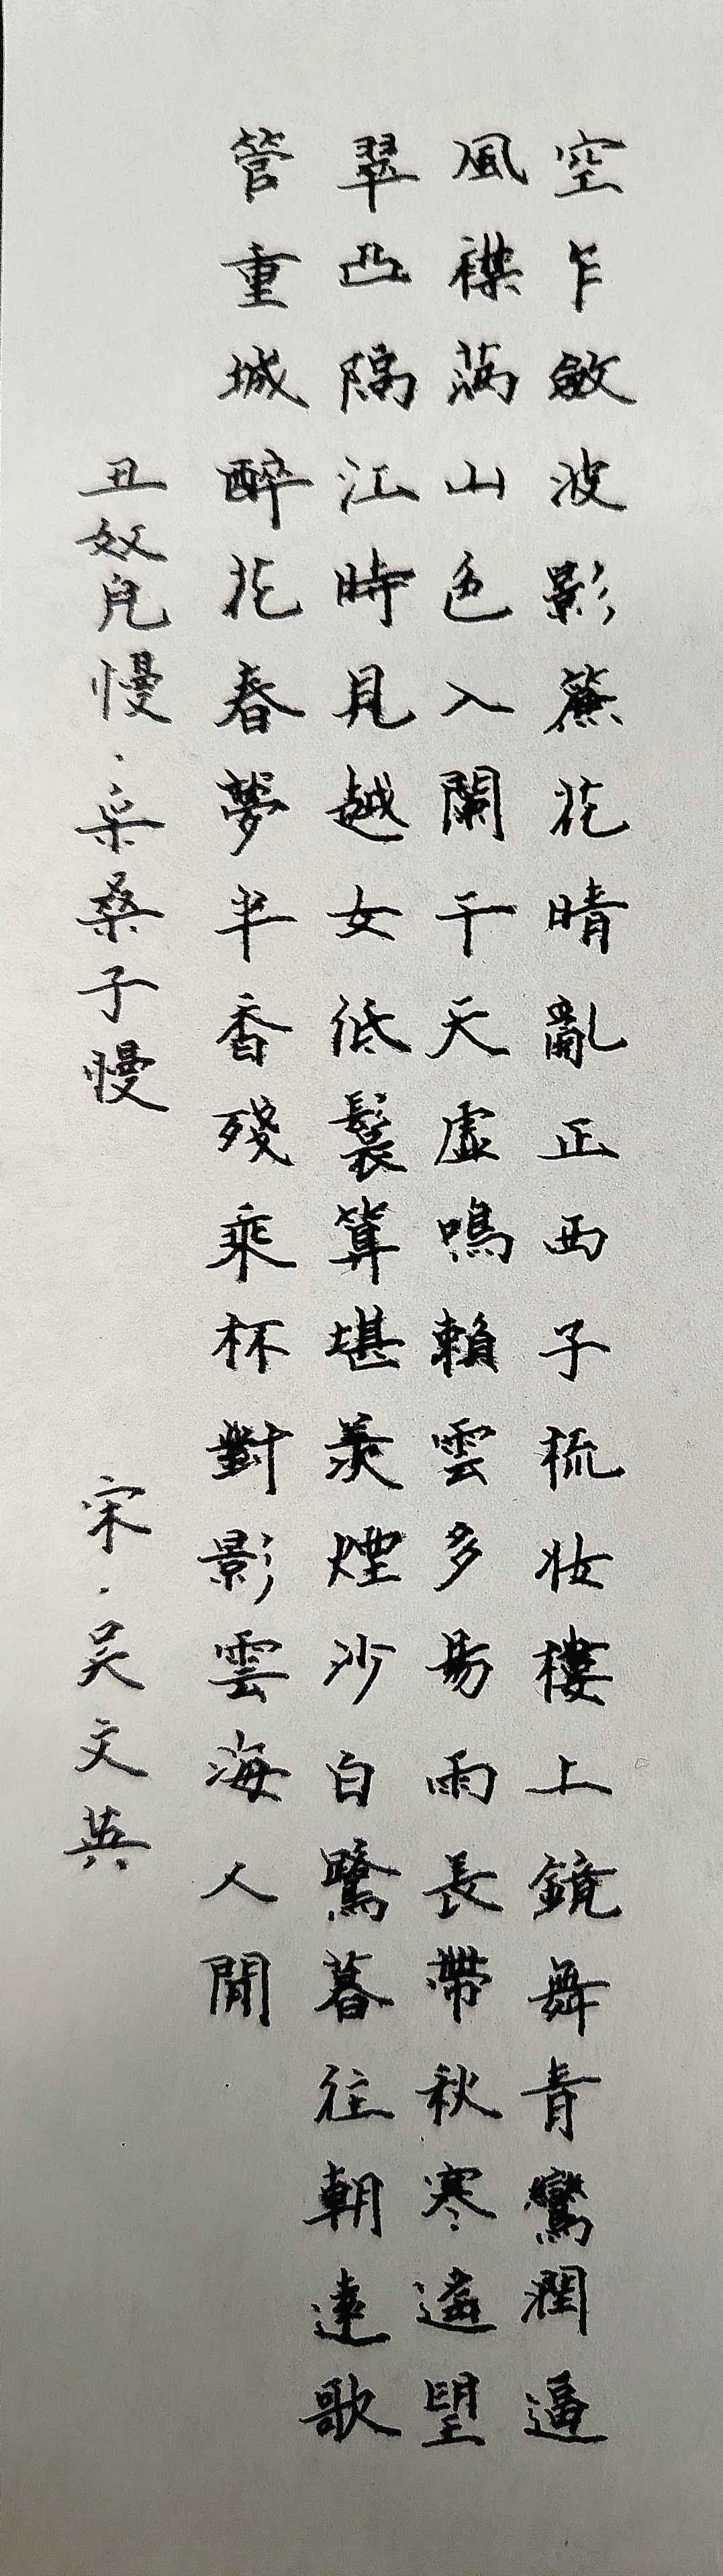 空乍敛波影簾花晴亂正西子梳妆樓上鏡舞青鸞潤逼
風襟滿山色入闌干天虛鳴賴雲多易雨長帶秋寒遙望
翠凸隔江時見越女低鬟算堪羨煙沙白鷺暮往朝還歌
管重城醉花春夢半香殘乘杯對影雲海人閒
丑奴兒慢·采桑子慢 宋·吴文英